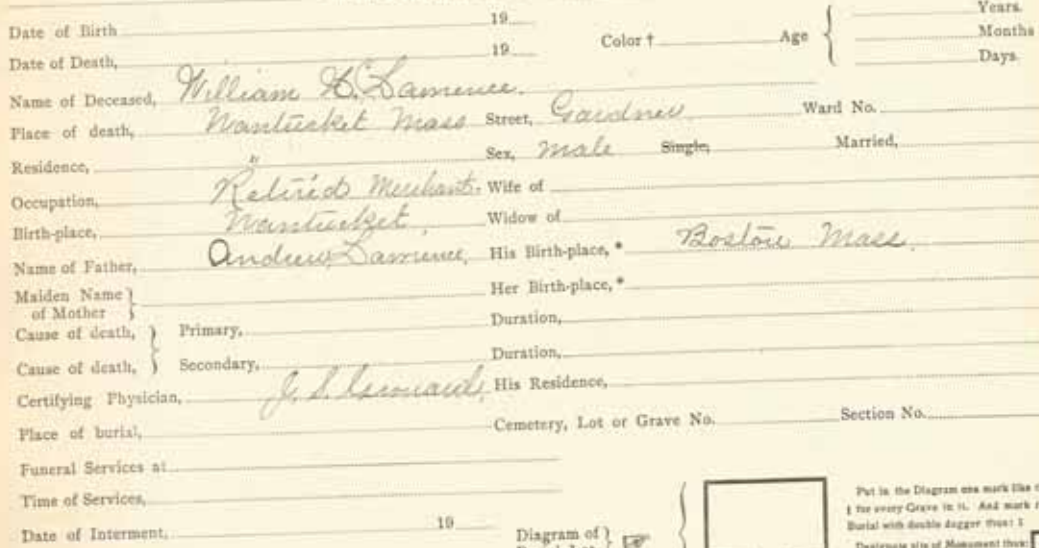 Date of Birth 19 Color † Age Years.
Months
Date of Death, 19 Days.
Name of Deceased, William H. Lawrence.
Place of death, Nantucket Mass Street, Gardner Ward No.
Residence, " Sex, Male Single, Married,
Occupation, Retired Merchant. Wife of
Birth-place, Nantucket, Widow of
Name of Father, Andrew Lawrence, His Birth-place, * Boston Mass.
Maiden Name of Mother Her Birth-place, *
Cause of death, Primary, Duration,
Cause of death, Secondary, Duration,
Certifying Physician, J. S. His Residence,
Place of burial, Cemetery, Lot or Grave No. Section No.
Funeral Services at
Time of Services,
Date of Interment, 19 Diagram of
Put in the Diagram one mark like
for every Grave in it. And mark
Burial with double dagger thus: ‡
Designate site of Monument thus: